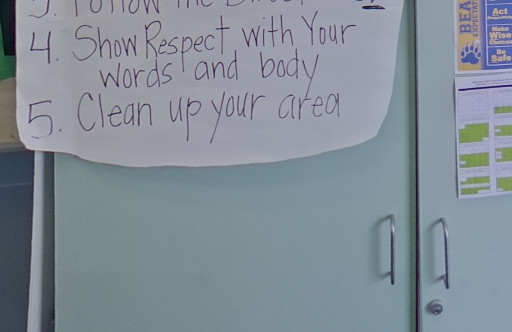 3. Follow the
4. Show Respect with Your
words and body
5. Clean up your area
BEA
Act
Make
Wise
Choices
Be
Safe